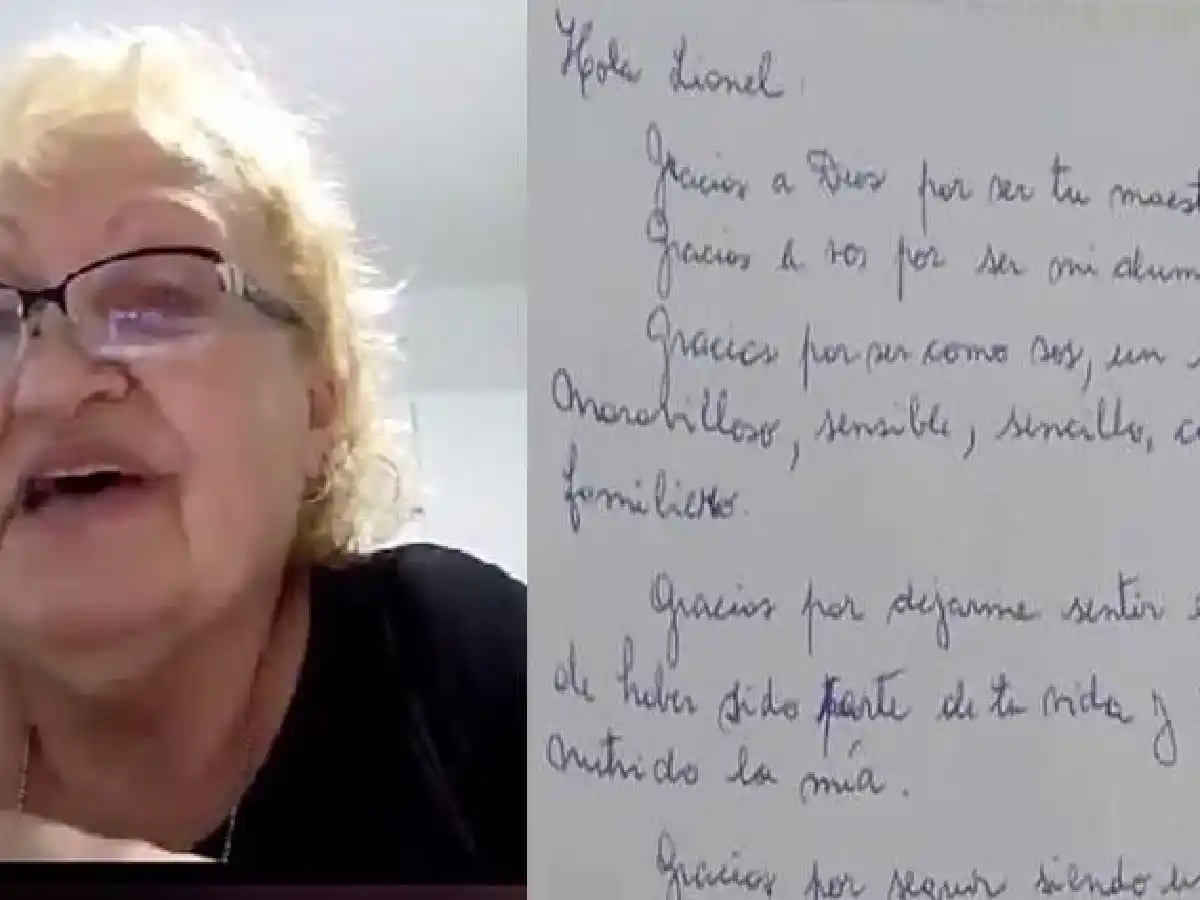 Hola Lionel:
Gracias a Dios por ser tu maest
Gracias a vos por ser mi alum
Gracias por ser como sos, un
maravilloso, sensible, sencillo,
familiero.
Gracias por dejarme sentir
de haber sido parte de tu vida y
nutrido la mía.
Gracias por seguir siendo